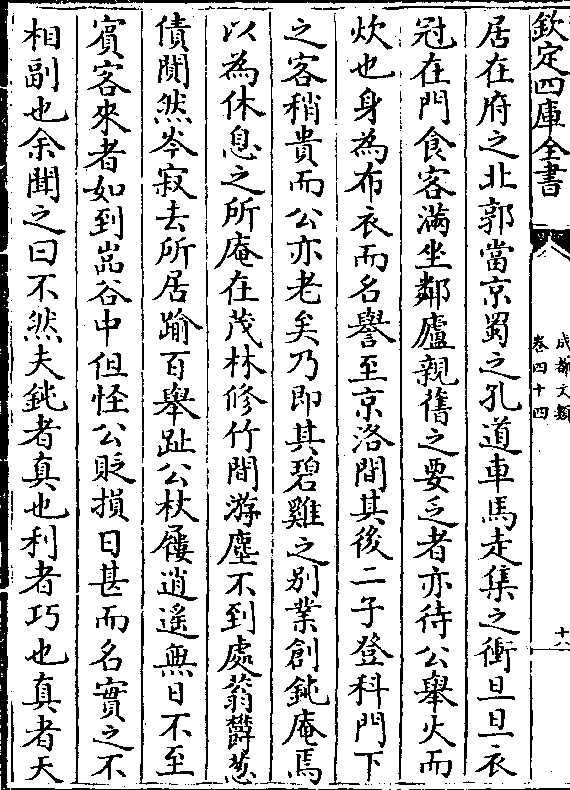 欽定四庫全書
成都文類
卷四十四
十八
居在府之北郭當京蜀之孔道車馬走集之衝旦旦衣
冠在門食客滿坐鄰廬親舊之要乏者亦待公舉火而
炊也身為布衣而名譽至京洛間其後二子登科門下
之客稍貴而公亦老矣乃即其碧雞之別業創鈍庵焉
以為休息之所庵在茂林修竹間游塵不到處蓊鬱葱
蒨閴然岑寂去所居踰百舉趾公杖屨逍遙無日不至
賓客來者如到嵓谷中但怪公貶損日甚而名實之不
相副也余聞之曰不然夫鈍者真也利者巧也真者天